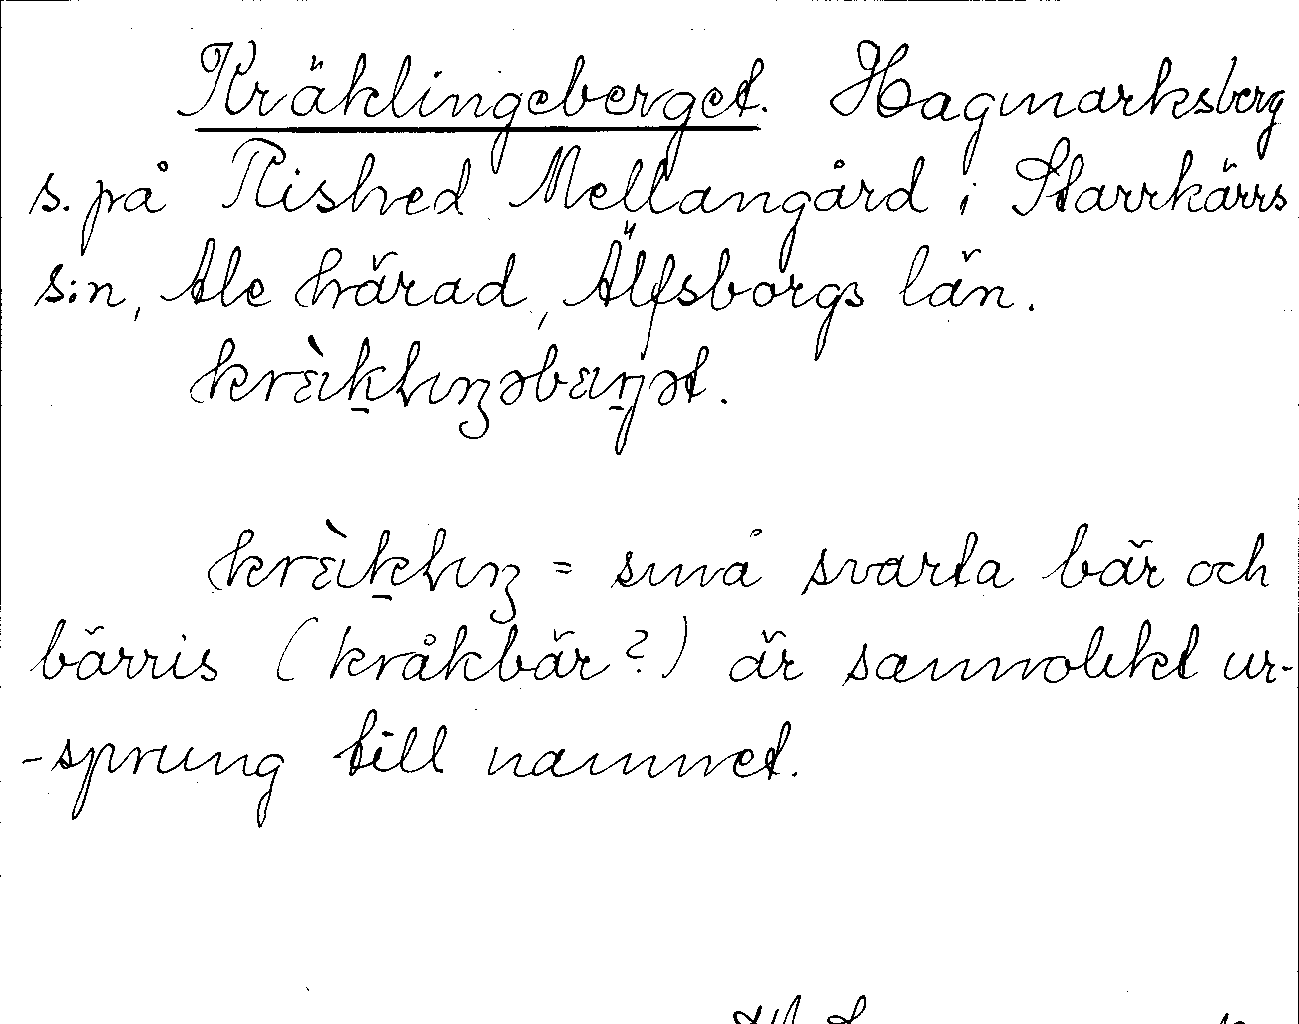 Kräklingeberget. Hagmarksberg
s. på Rished Mellangård i Starrkärrs
s:n, Ale härad, Älfsborgs län.
krὲkliŋəbærjət.

krὲkliŋ = små svarta bär och
bärris (kråkbär?) är sannolikt ur-
-sprung till namnet.